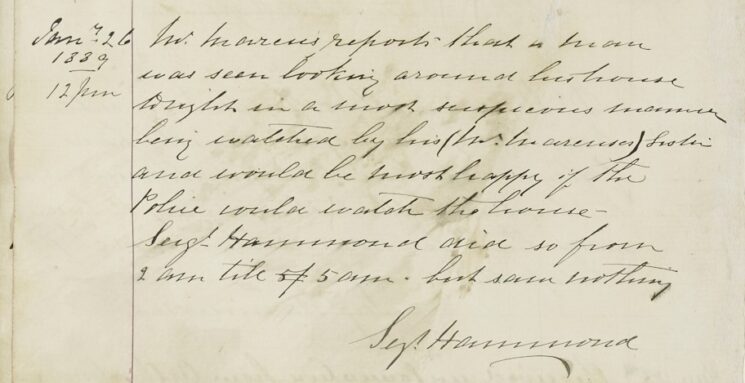 Jany 26 Mr. Marcus reports that a man
1889 was seen looking around his house
12 pm tonight in a most suspicious manner
being watched by his (Mr. Marcuses) Sister
and would be most happy if the
Police would watch the house -
Sergt. Hammond did so from
2 am till 5 am. but saw nothing
Sergt. Hammond